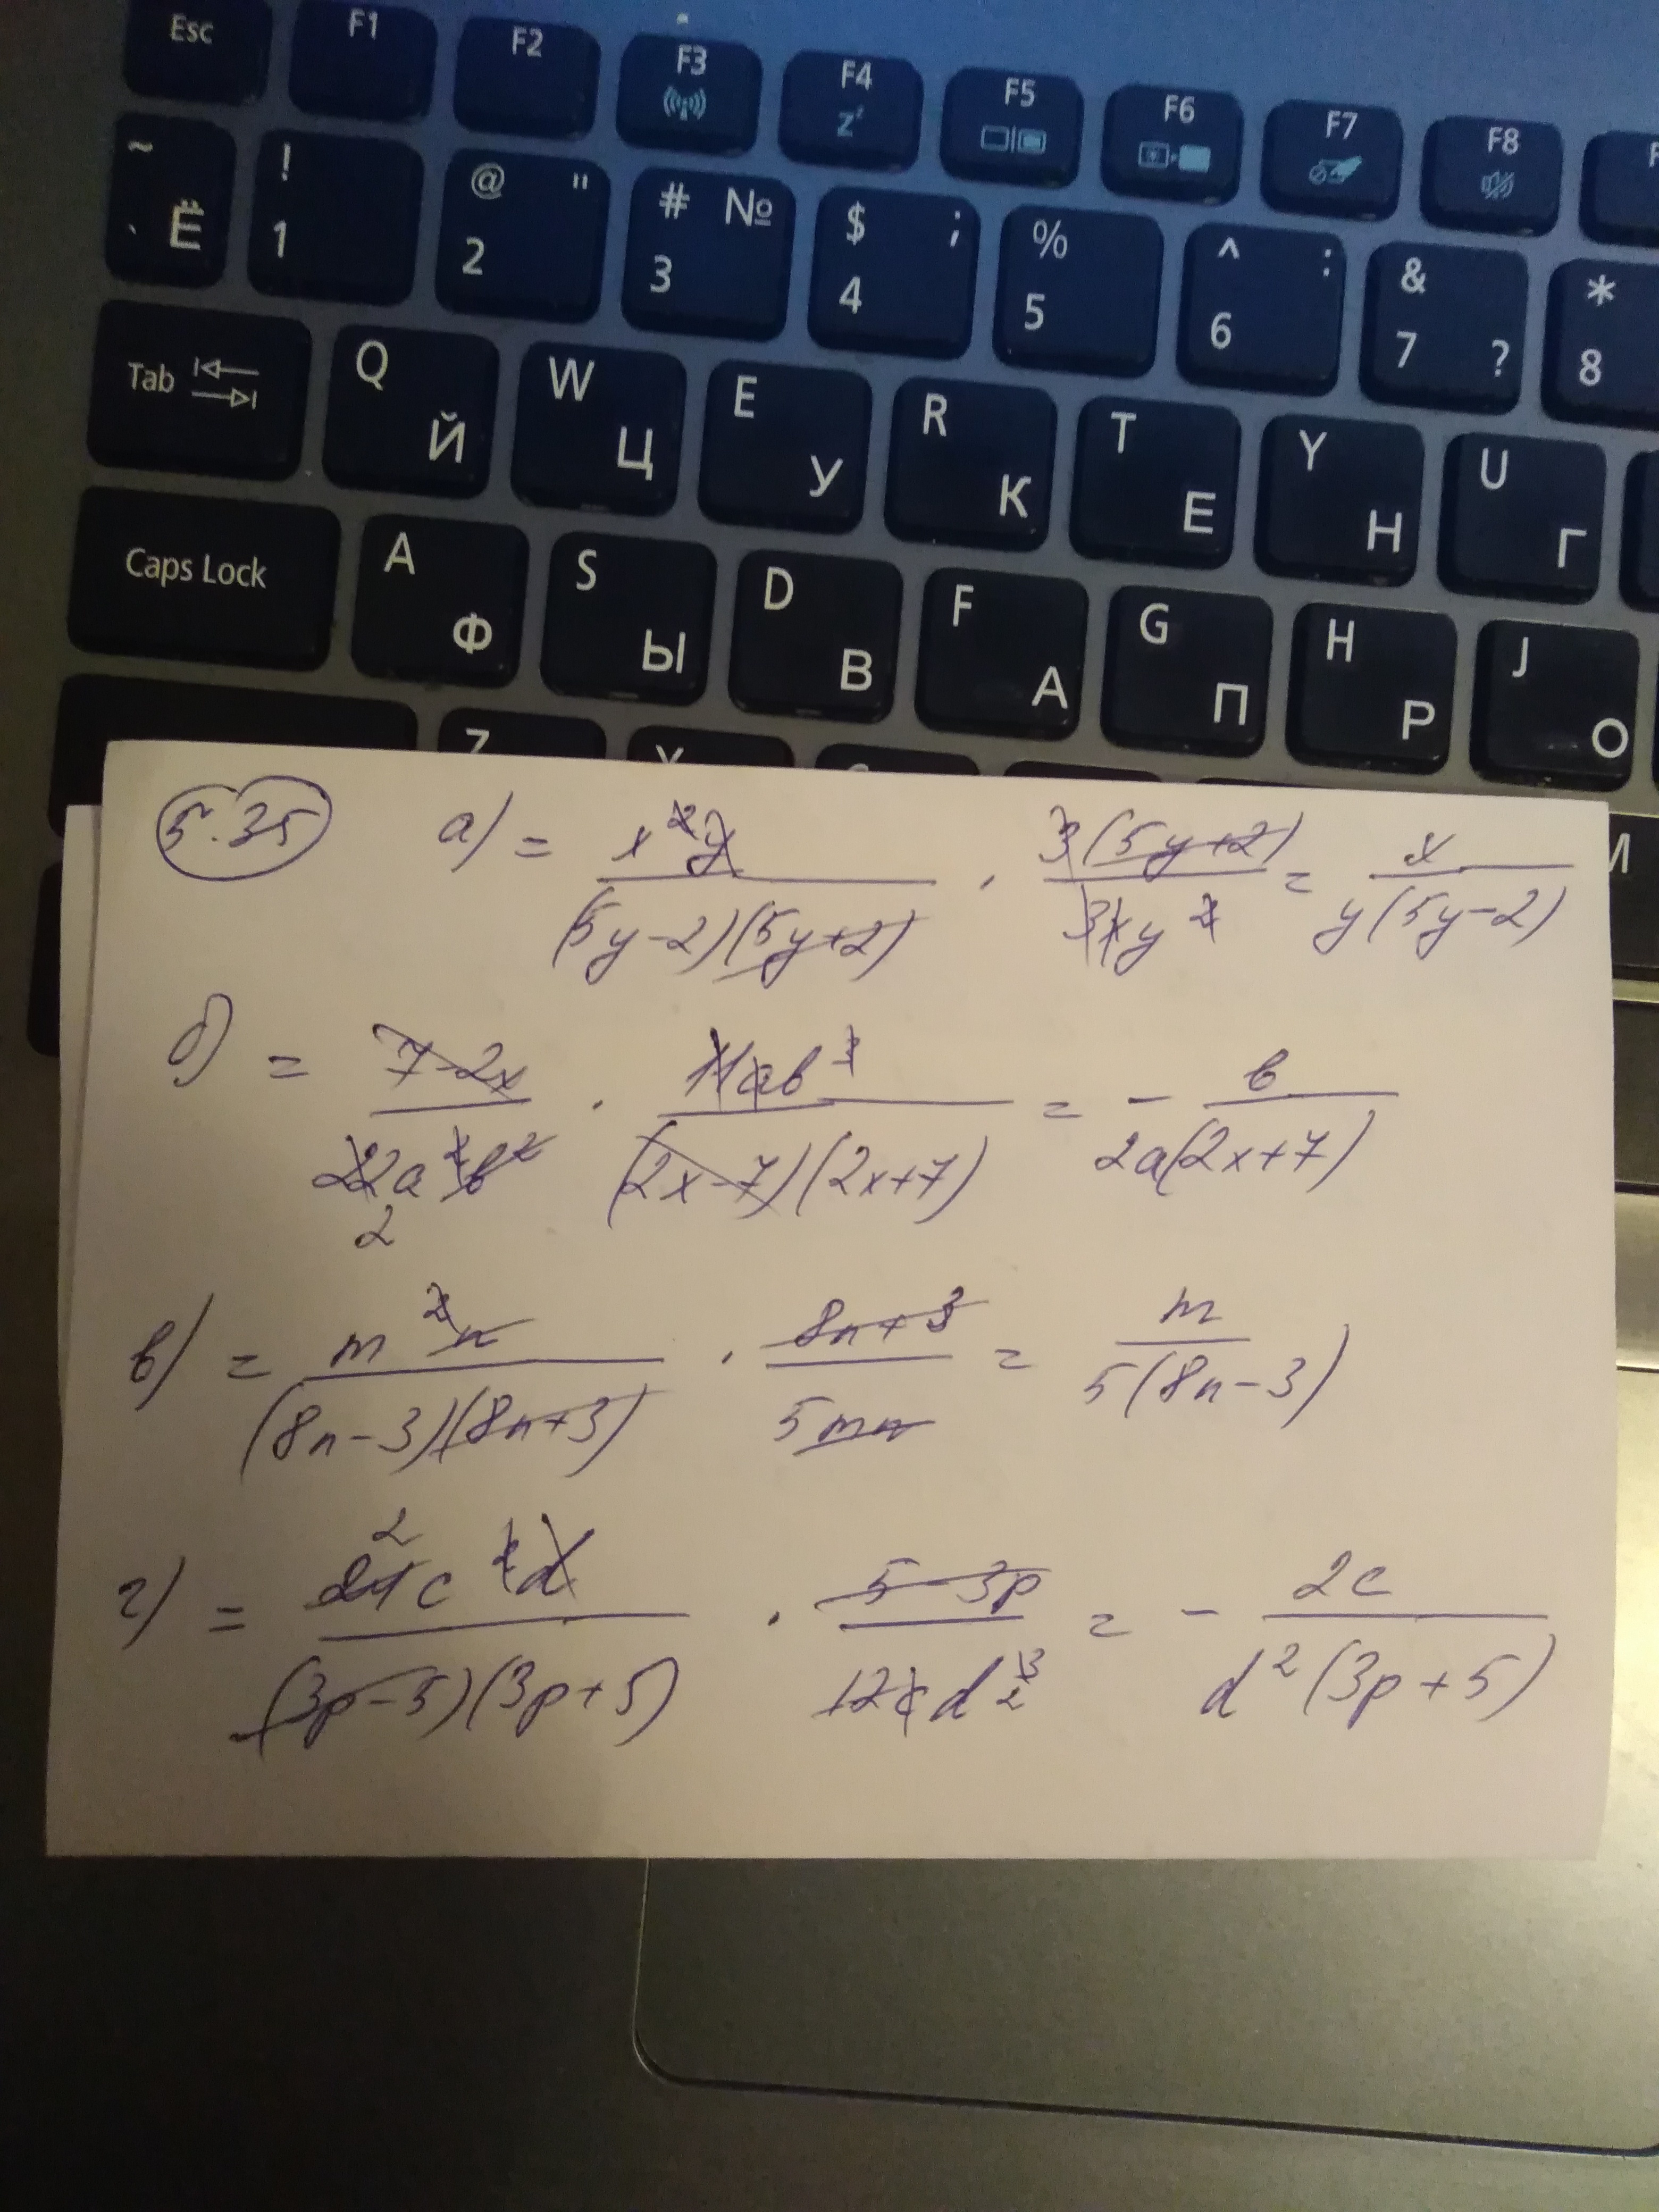 Esc F1 F2 F3 F4 zᶻ F5 F6 F7 F8 F
~ ` Ё ! 1 @ " 2 # № 3 $ ; 4 % 5 ^ : 6 & 7 ? * 8
Tab Q Й W Ц E У R К T Е Y Н U Г
Caps Lock A Ф S Ы D В F А G П H Р J О
Z X C М
5.35 а) = x²y / (5y-2)(5y+2) · 3(5y+2) / 3xy² = x / y(5y-2)
б) = 7-2x / 22a²b² · 11ab³ / (2x-7)(2x+7) = - b / 2a(2x+7)
2
в) = m²n / (8n-3)(8n+3) · 8n+3 / 5mn = m / 5(8n-3)
2
г) = 24c²d / (3p-5)(3p+5) · 5-3p / 12cd³ = - 2c / d²(3p+5)
2